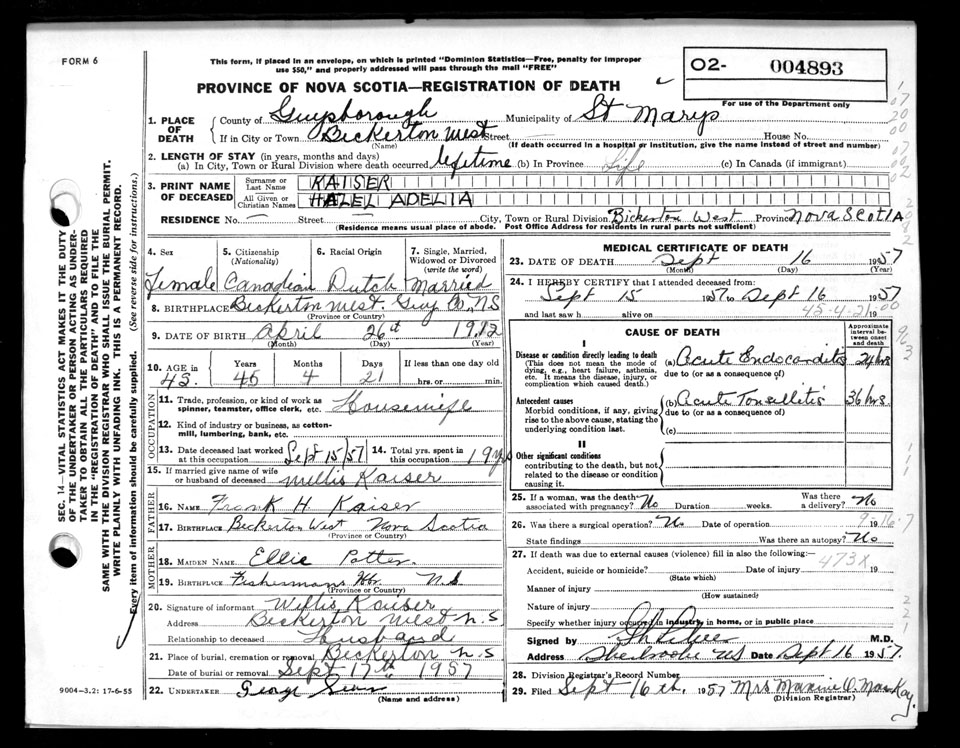 FORM 6
This form, if placed in an envelope, on which is printed "Dominion Statistics—Free, penalty for improper
use $50," and properly addressed will pass through the mail "FREE"
O2- 004893
For use of the Department only
PROVINCE OF NOVA SCOTIA—REGISTRATION OF DEATH
1. PLACE OF DEATH
County of Guysborough Municipality of St Marys
If in City or Town Bickerton West Street House No.
(Name) (If death occurred in a hospital or institution, give the name instead of street and number)
2. LENGTH OF STAY (in years, months and days)
(a) In City, Town or Rural Division where death occurred lifetime (b) In Province Life (c) In Canada (if immigrant)
3. PRINT NAME OF DECEASED
Surname or Last Name KAISER
All Given or Christian Names HAZEL ADELIA
RESIDENCE No. — Street — City, Town or Rural Division Bickerton West Province Nova Scotia
(Residence means usual place of abode. Post Office Address for residents in rural parts not sufficient)
4. Sex 5. Citizenship (Nationality) 6. Racial Origin 7. Single, Married, Widowed or Divorced (write the word)
Female Canadian Dutch Married
8. BIRTHPLACE Beckerton West. Guy Co, N.S
(Province or Country)
9. DATE OF BIRTH April 26st 1912
(Month) (Day) (Year)
10. AGE in Years Months Days If less than one day old
45. 45 4 21 hrs. or min.
OCCUPATION
11. Trade, profession, or kind of work as
spinner, teamster, office clerk, etc. Housewife
12. Kind of industry or business, as cotton-
mill, lumbering, bank, etc.
13. Date deceased last worked
at this occupation Sept 15/57
14. Total yrs. spent in
this occupation 19 yrs
15. If married give name of wife
or husband of deceased Willis Kaiser
FATHER
16. NAME Frank H. Kaiser
17. BIRTHPLACE Beckerton West Nova Scotia
(Province or Country)
MOTHER
18. MAIDEN NAME Ellie Potter
19. BIRTHPLACE Fishermans Hbr. N.S
(Province or Country)
20. Signature of informant Willis Kaiser
Address Beckerton West N.S
Relationship to deceased Husband
21. Place of burial, cremation or removal Beckerton N.S
Date of burial or removal Sept 17th 1957
22. UNDERTAKER George
(Name and address)
9004-3.2: 17-6-55
MEDICAL CERTIFICATE OF DEATH
23. DATE OF DEATH Sept 16 1957
(Month) (Day) (Year)
24. I HEREBY CERTIFY that I attended deceased from:
Sept 15 1957 to Sept 16 1957
and last saw h alive on 19
45-4-21
CAUSE OF DEATH
Approximate interval between onset and death
I
Disease or condition directly leading to death
(This does not mean the mode of
dying, e.g., heart failure, asthenia,
etc. It means the disease, injury, or
complication which caused death.)
(a) Acute Endocarditis 24 hrs
due to (or as a consequence of)
Antecedent causes
Morbid conditions, if any, giving
rise to the above cause, stating the
underlying condition last.
(b) Acute Tonsillitis 36 hrs
due to (or as a consequence of)
(c)
II
Other significant conditions
contributing to the death, but not
related to the disease or condition
causing it.
25. If a woman, was the death
associated with pregnancy? No Duration weeks. Was there
a delivery? No
26. Was there a surgical operation? No Date of operation 19
State findings Was there an autopsy? No
27. If death was due to external causes (violence) fill in also the following:—
473X
Accident, suicide or homicide? Date of injury 19
(State which)
Manner of injury
(How sustained)
Nature of injury
Specify whether injury occurred in industry, in home, or in public place
Signed by M.D.
Address Sherbrooke NS Date Sept 16 1957.
28. Division Registrar's Record Number
29. Filed Sept 16th. 1957 Mrs O. MacKay
(Division Registrar)
SEC. 14—VITAL STATISTICS ACT MAKES IT THE DUTY
OF THE UNDERTAKER OR PERSON ACTING AS UNDER-
TAKER TO OBTAIN ALL THE PARTICULARS REQUIRED
IN THE "REGISTRATION OF DEATH" AND TO FILE THE
SAME WITH THE DIVISION REGISTRAR WHO SHALL ISSUE THE BURIAL PERMIT.
WRITE PLAINLY WITH UNFADING INK. THIS IS A PERMANENT RECORD.
Every item of information should be carefully supplied. (See reverse side for instructions.)